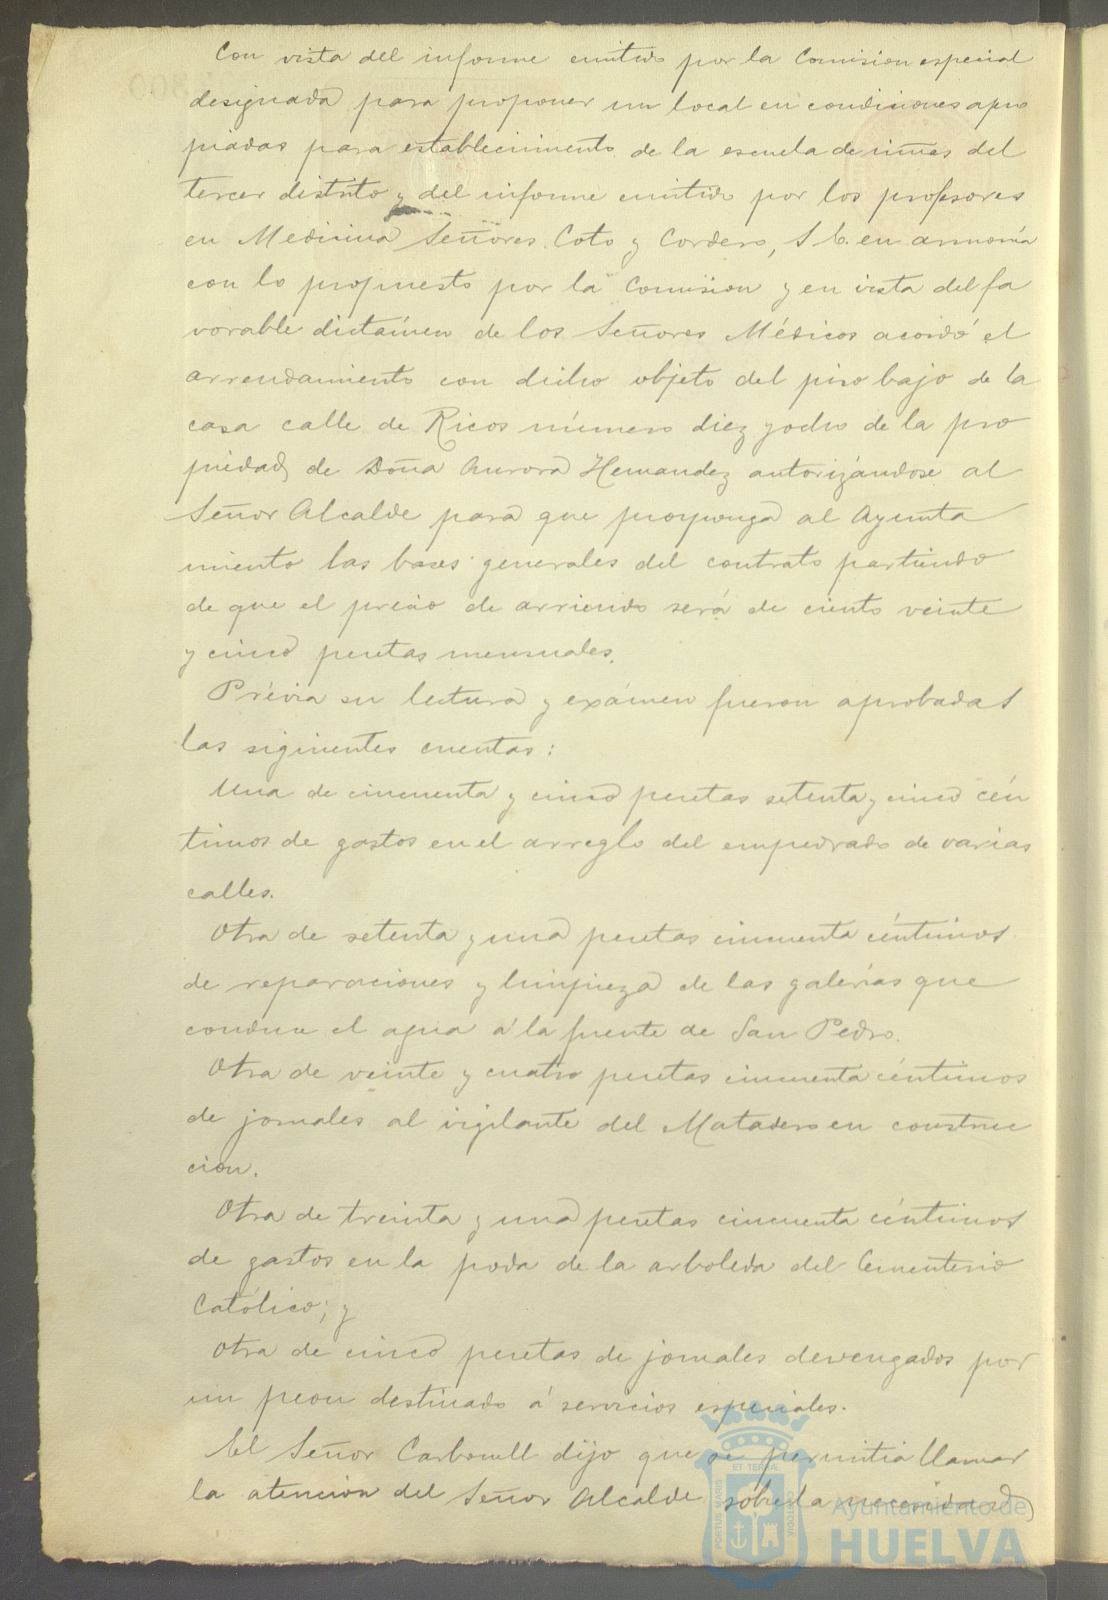 Con vista del informe emitido por la Comision especial
designada para proponer un local en condiciones apro
piadas para establecimiento de la escuela de niñas del
tercer distrito y del informe emitido por los profesores
en Medicina Señores Coto y Cordero, S. E. en armonía
con lo propuesto por la Comision y en vista del fa
vorable dictámen de los Señores Médicos acordó el
arrendamiento con dicho objeto del piso bajo de la
casa calle de Ricos número diez y ocho de la pro
piedad de Doña Aurora Hernandez autorizándose al
Señor Alcalde para que proponga al Ayunta
miento las bases generales del contrato partiendo
de que el precio de arriendo será de ciento veinte
y cinco pesetas mensuales.
Prévia su lectura y exámen fueron aprobadas
las siguientes cuentas:
Una de cincuenta y cinco pesetas setenta y cinco cén
timos de gastos en el arreglo del empedrado de varias
calles.
Otra de setenta y una pesetas cincuenta céntimos
de reparaciones y limpieza de las galerías que
conduce el agua á la fuente de San Pedro.
Otra de veinte y cuatro pesetas cincuenta céntimos
de jornales al vigilante del Matadero en construc
cion.
Otra de treinta y una pesetas cincuenta céntimos
de gastos en la poda de la arboleda del Cementerio
Católico; y
Otra de cinco pesetas de jornales devengados por
un peon destinado á servicios especiales.
El Señor Carbonell dijo que se permitia llamar
la atencion del Señor Alcalde sobre la necesidad
PORTUS MARIS ET TERRAE CUSTODIA
Ayuntamiento de
HUELVA